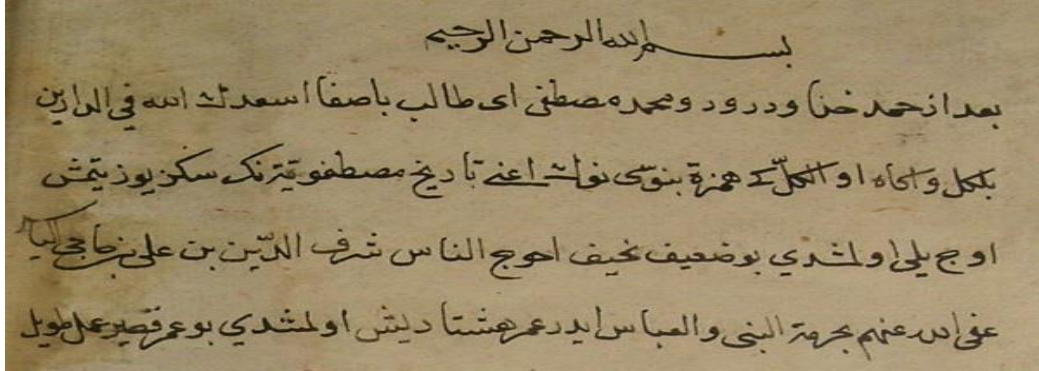 بسم الله الرحمن الرحيم
بعد از حمد خدا و درود و محمد مصطفى اى طالب باصفا اسعدك الله في الدارين
همزة بنوى اعنى تاريخ مصطفويه نك سكز يوز يتمش
اوج يلى اولمشدي بو ضعيف نحيف احوج الناس شرف الدّين بن على بن حاجى الياس
عفى الله عنهم بحرمة النبى والعباس ايدر عمر هشتاديش اولمشدي بو عمر قصير عمل طويل